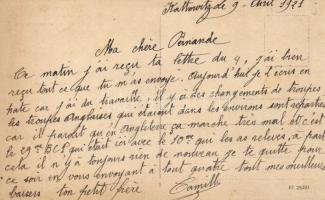 Kattowitz le 9 Avril 1921
Ma chère Fernande
Ce matin j'ai reçu ta lettre du 4, j'ai bien
reçu tout ce que tu m'as envoyé. Aujourd'hui je t'écris en
hate car j'ai du travaille, il y a des changements de troupes
les troupes Anglaises qui étaient dans les environs sont reparties
car il parait qu'en Angleterre ça marche très mal et c'est
le 29me BCP qui était ici avec le 10me qui les a, a part
cela il n'y a toujours rien de nouveau je te quitte pour
ce soir en vous envoyant à tout quatre tout mes meilleurs
baisers ton petit frère
Camille